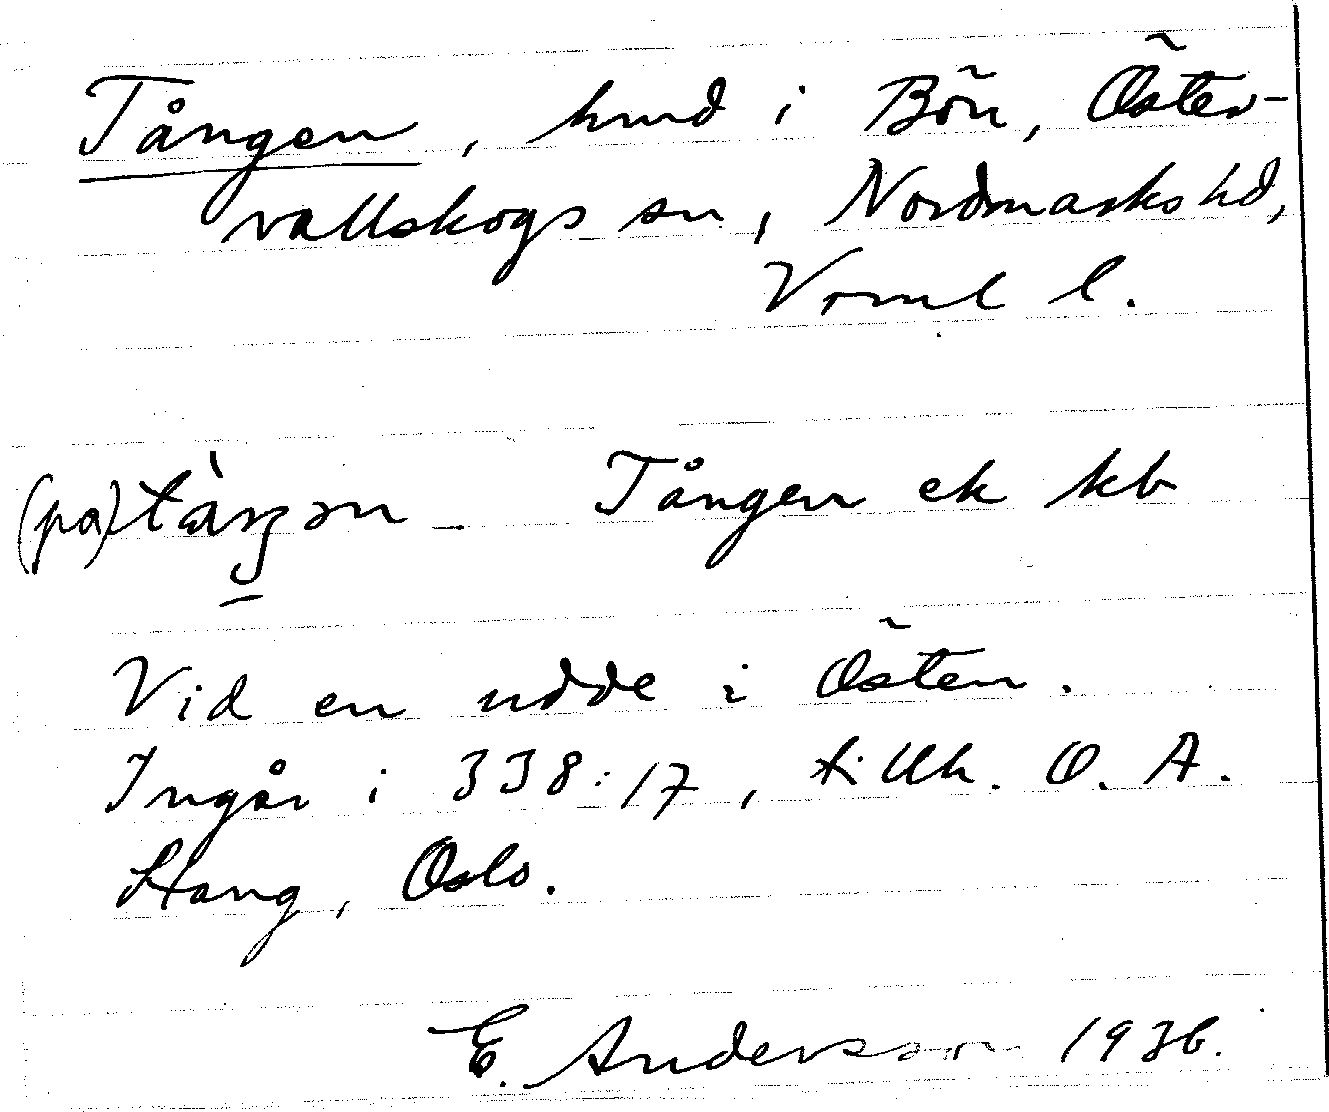 Tången, hmd i Bön, Öster-
vallskogs sn, Nordmarks hd,
Vrml l.
(pa) tàŋən Tången ek kb
Vid en udde i Östen.
Ingår i 338:17, tillh. O. A.
Stang, Oslo.
E. Andersson 1936.